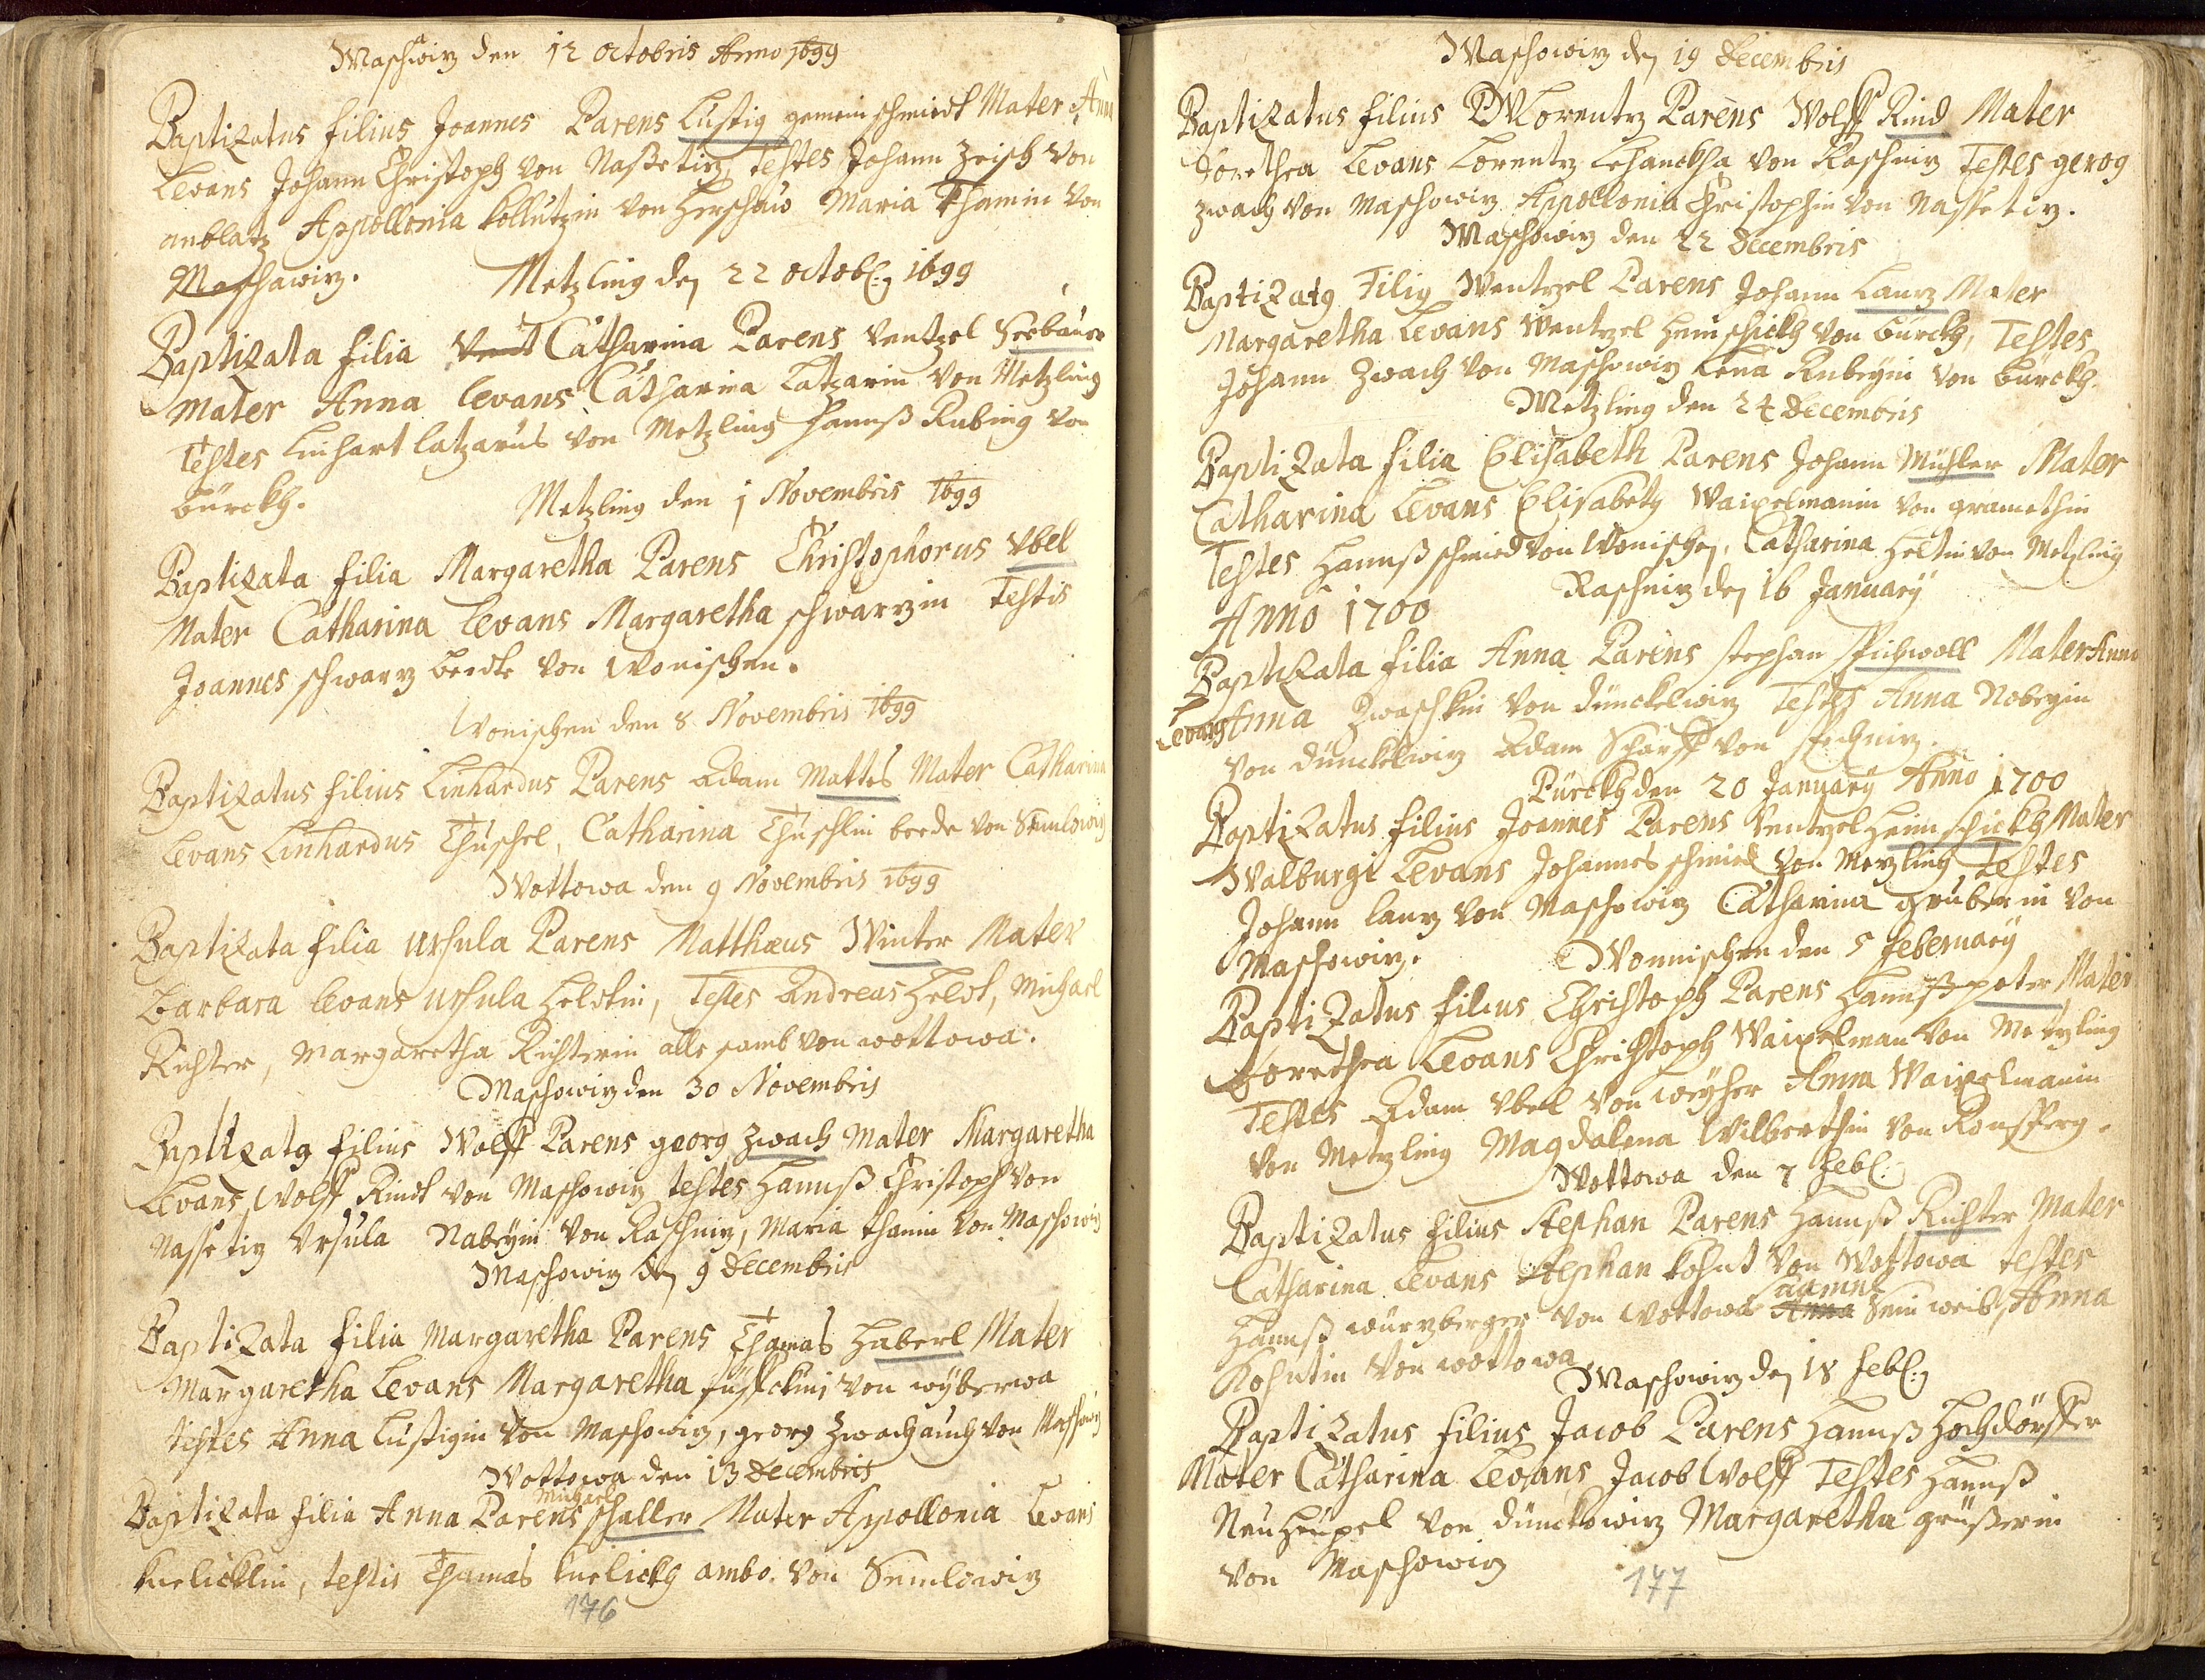 Maschowiz den 12 octobris Anno 1699
Baptizatus filius Joannes Parens Lustig gemein schmiedt Mater Anna
Levans Johann Christoph von Nassetiz, testes Johann Zeisch von
anblatz Appollonia kollutzin von Herschaw Maria Thamin von
Maschawiz.
Metzling den 22 octobr: 1699
Baptizata filia Catharina Parens Ventzel Seebauer
Mater Anna levans Catharina Latzarin von Metzling
Testes Linhart latzarus von Metzling Hannß Rubing von
bürckh.
Metzling den 1 Novembris 1699
Baptizata filia Margaretha Parens Christophorus Vbel
Mater Catharina levans Margaretha schwarzin Testis
Joannes schwarz beede von Wonischen.
Wonischen den 8 Novembris 1699
Baptizatus filius Linhardus Parens Adam Mattes Mater Catharina
Levans Linhardus Thuschel, Catharina Thuschlin beede von Semlowiz
Wottowa den 9 Novembris 1699
Baptizata filia Ursula Parens Matthæus Winter Mater
Barbara levans Ursula Heldtin, Testes Andreas Heldt, Michael
Richter, Margaretha Richterin alle samb von wottowa.
Maschowiz den 30 Novembris
Baptizatg filius Wolff Parens georg Zwach Mater Margaretha
Levans Wolff Rindt von Maschowiz testes Hannß Christoph von
Nassetiz Vrsula Nabeyin von Raschniz, Maria thamin von Maschowiz
Maschowiz den 9 Decembris
Baptizata filia Margaretha Parens Thamas Haberl Mater
Margaretha Levans Margaretha von wyberwa
testes Anna Lustigin von Maschowiz, georg Zwach auch von Maschowiz
Wottowa den 13 Decembris
Michael
Baptizata filia Anna Parens schaller Mater Appollonia Levans
kuelicklin, testis Thamas kuelickh ambo von Semlowiz
176
Maschowiz den 19 Decembris
Baptizatus filius Lorentz Parens Wolff Rind Mater
Dorethea Levans Lorentz Lehanckha von Raschniz Testes gerog
Zwach von Maschowiz Appollonia Christophin von Nassetiz.
Maschowiz den 22 Decembris
Baptizatg Filig Wentzel Parens Johann Lanz Mater
Margaretha Levans Wentzel Heinschickh von bürckh, Testes
Johann Zwach von Maschowiz Lena Rubeyin von bürckh.
Metzling den 24 Decembris
Baptizata filia Elisabeth Parens Johann Mühler Mater
Catharina Levans Elisabeth Waixelmanin von gramethin
Testes Hannß schmied von Wonischen, Catharina Heltin von Metzling
Raschniz den 16 January
Anno 1700
Baptizata filia Anna Parens stephan Mater Anna
Levans Anna Zwaschkin von dünckelwiz Testes Anna Nobeyin
von dünckelwiz Adam Scharff von
Pürckh den 20 January Anno 1700
Baptizatus filius Joannes Parens Ventzel Heinschickh Mater
Walburgi Levans Johannes schmied von Metzling Testes
Johann lanz von Maschowiz Catharina gruberin von
Maschowiz.
Wonnischen den 5 february
Baptizatus filius Christoph Parens Hannß peter Mater
Dorethea Levans Christoph Waixelman von Metzling
Testes Adam Vbel von weyher Anna Waixelmanin
von Metzling Magdalena Wilberthin von Ronsperg.
Wottowa den 7 febr:
Baptizatus filius Stephan Parens Hannß Richter Mater
Catharina Levans Stephan kohnt von Wottowa testes
Hannß würzberger von Wottowa Sein weib, Anna
Kohntin von wottowa
Maschowiz den 18 febr:
Baptizatus filius Jacob Parens Hannß Hochdörffer
Mater Catharina Levans Jacob Wolff Testes Hannß
Neuheupel von dünckowiz Margaretha grüßerin
von Maschowiz
177